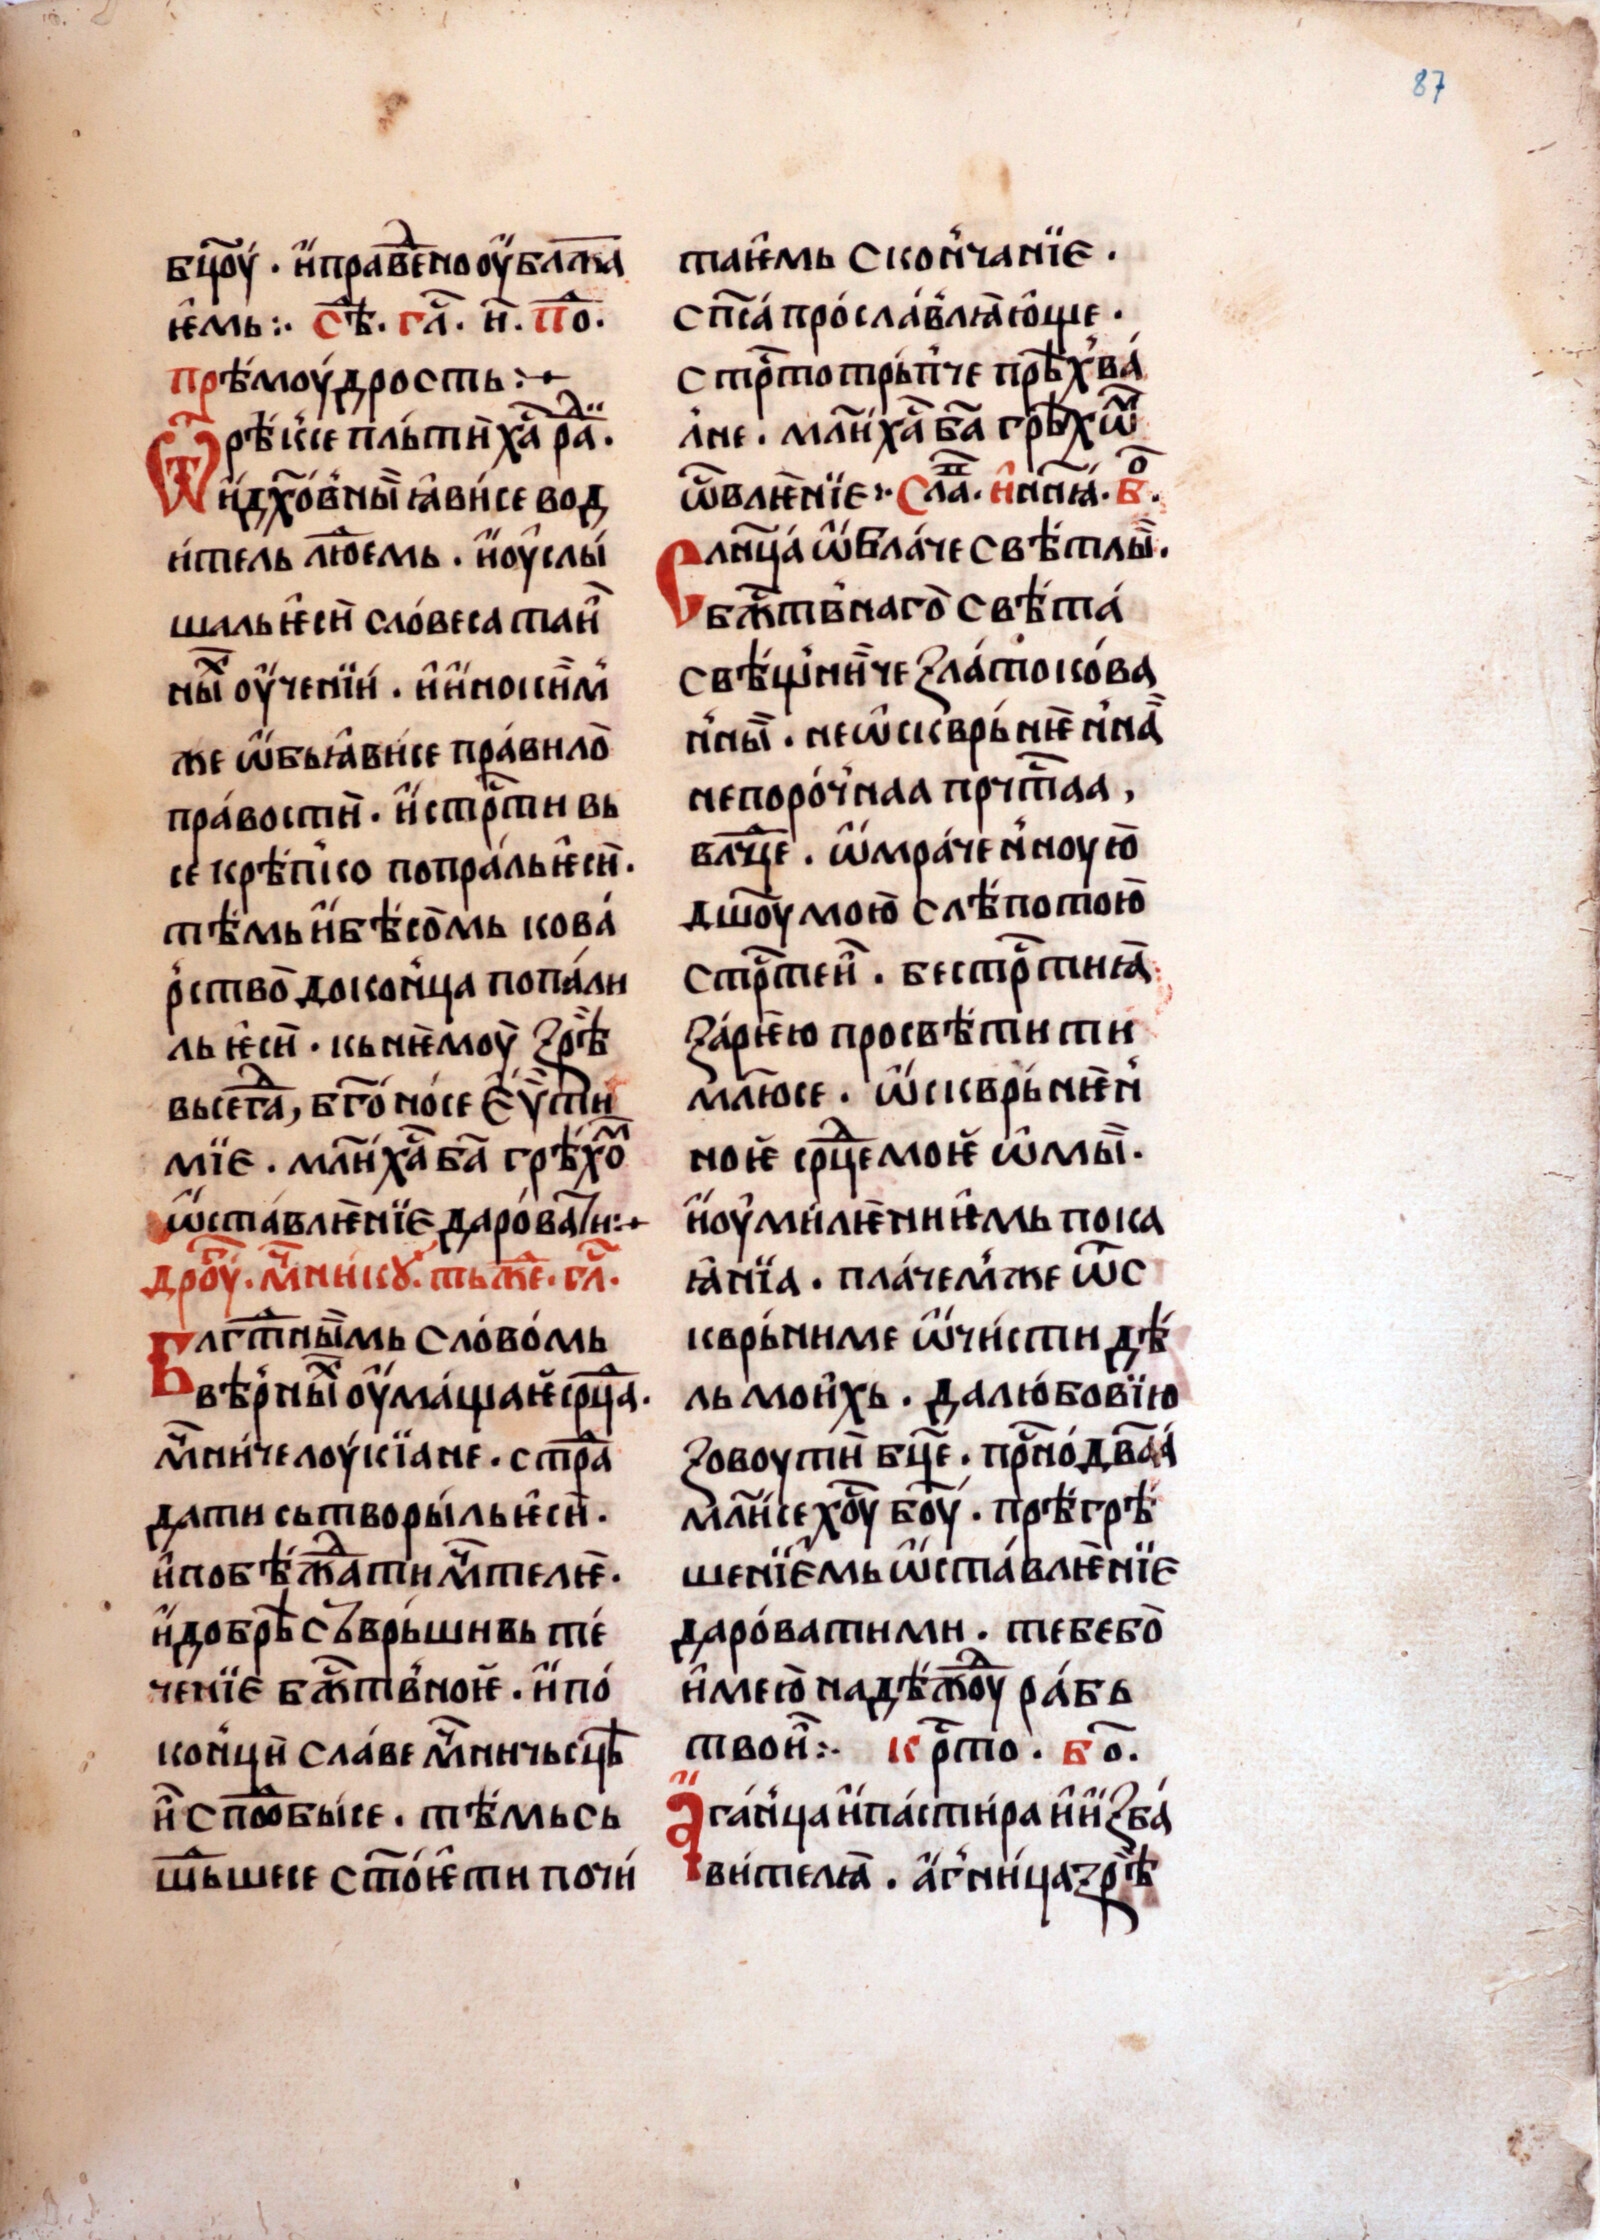 87
бц҃оу́ . и҆ праве́дно оу҆блажа
ѥ҆мь :· сѣ҃ . гл҃ . и҃ . по҃ .
Прѣ́моу́дрость :·
Ѿрѣ́кь се пль́ти х҃а ра҃ди .
и҆ дх҃о́вны҃ ꙗ҆ви́ се вод
и́тель лю҃демь . и҆ оу҆слы́
шаль ѥ҆си̏ сло́веса таи̏
ны҃х оу҆че́нїи . и҆ и҆нокѝм
же ѡ҆бь ꙗ҆ви́ се пра́вило̏
пра́вости̏ . и҆ стрⷭ҇ти вь
се крѣ́пко попра́ль ѥ҆си̏ .
тѣ́мь и҆ бѣ́сѡ́мь кова́
рство̏ до кон̾ца попа́ли
ль ѥ҆си̏ . кь нѥ́моу̏ зрѣ̏
вьсегда̀, бг҃оно́се е҆ѵ҆ѳи
мїе . мл҃и х҃а ба҃ грѣ́хѡ҃м
ѡ҆ста́влѥ́нїе даро́вати :·
дроу҃гы́ . мч҃ни́кꙋ . тьже . гл҃ .
Блгⷭ҇тны́мь сло́во́мь
вѣ́рны҃х оу҆ма́щаѥ срⷣца .
мч҃ни́че лоу́кїане . стра
дати сьтвори́ль ѥ҆си̏ .
и҆ побѣжда́ти мч҃телѥ .
и҆ добрѣ̀ съврь́шивь те́
че́нїе бжⷭ҇тв̾ноѥ . и҆ по́
кон̾ци̏ сла́ве мч҃ничьсцѣ̏
и҆ спⷣобы́ се . тѣ́мь сь
шь́шесе ст҃о́ѥ ти почи́
таѥ҆мь скон̾чанїе .
сп҃са́ про́сла́влꙗ́ю҆ще .
стрⷭ҇тотрь́пче прѣх́ва́
лне . мл҃и х҃а ба҃ грѣхѡ҃м
ѡ҃влѥ́нїе :· Сла҃ . и҆ нн҃ꙗ . бо҃ .
Слн҃ца́ ѡ҆бла́че свѣ́тлы̏ .
бжⷭ҇тв̾наго̏ свѣ́та́
свѣ́щни̏че зла́токо́ва
н̾ны̏ . неѡ҆скврь́нѥн̾на̏
непоро́ч̾наа прчⷭ҇таа ,
влⷣце . ѡ҆мра́чен̾ноую̏
дш҃оу мою̏ слѣ́потою̏
стрⷭ҇теи̏ . бестрⷭ҇тниꙗ̏
за́рѥю просвѣ́ти ти
млю҃се . ѡ҆скврь́нѥн̾
ноѥ срⷣце моѥ ѡ҆мы̏ .
и҆ оу҆ми́лѥниѥ҆мь пока
ꙗ́нїа . пла́чем̾же ѿс
кврь́ниме ѡ҆чи́сти дѣ́
ль мои҆хь . да любовїю
зовоу ти̏ бц҃е . прⷭ҇но́два҃а́
мл҃и се хо҃у бо҃у . прѣ́грѣ́
ше́нїе҆мь ѡ҆ста́влѥ́нїе
даро́вати ми . тебе бо̏
и҆мею̏ наде́ждоу ра́бь
твои̏ :· Крⷭ҇то . бо҃ .
А҆га́н̾ца и҆ па́стира и҆ и҆зба́
ви́телꙗ . а҆гни́ца зрѣ̏